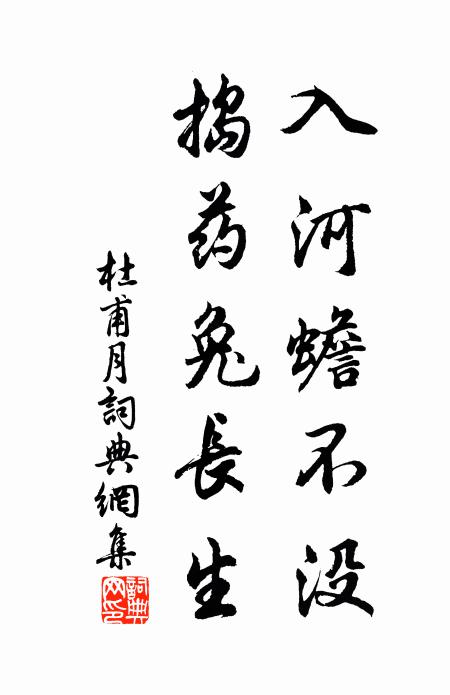 入河蟾不没
搗药兔長生
杜甫月詞典網集
詞典網印